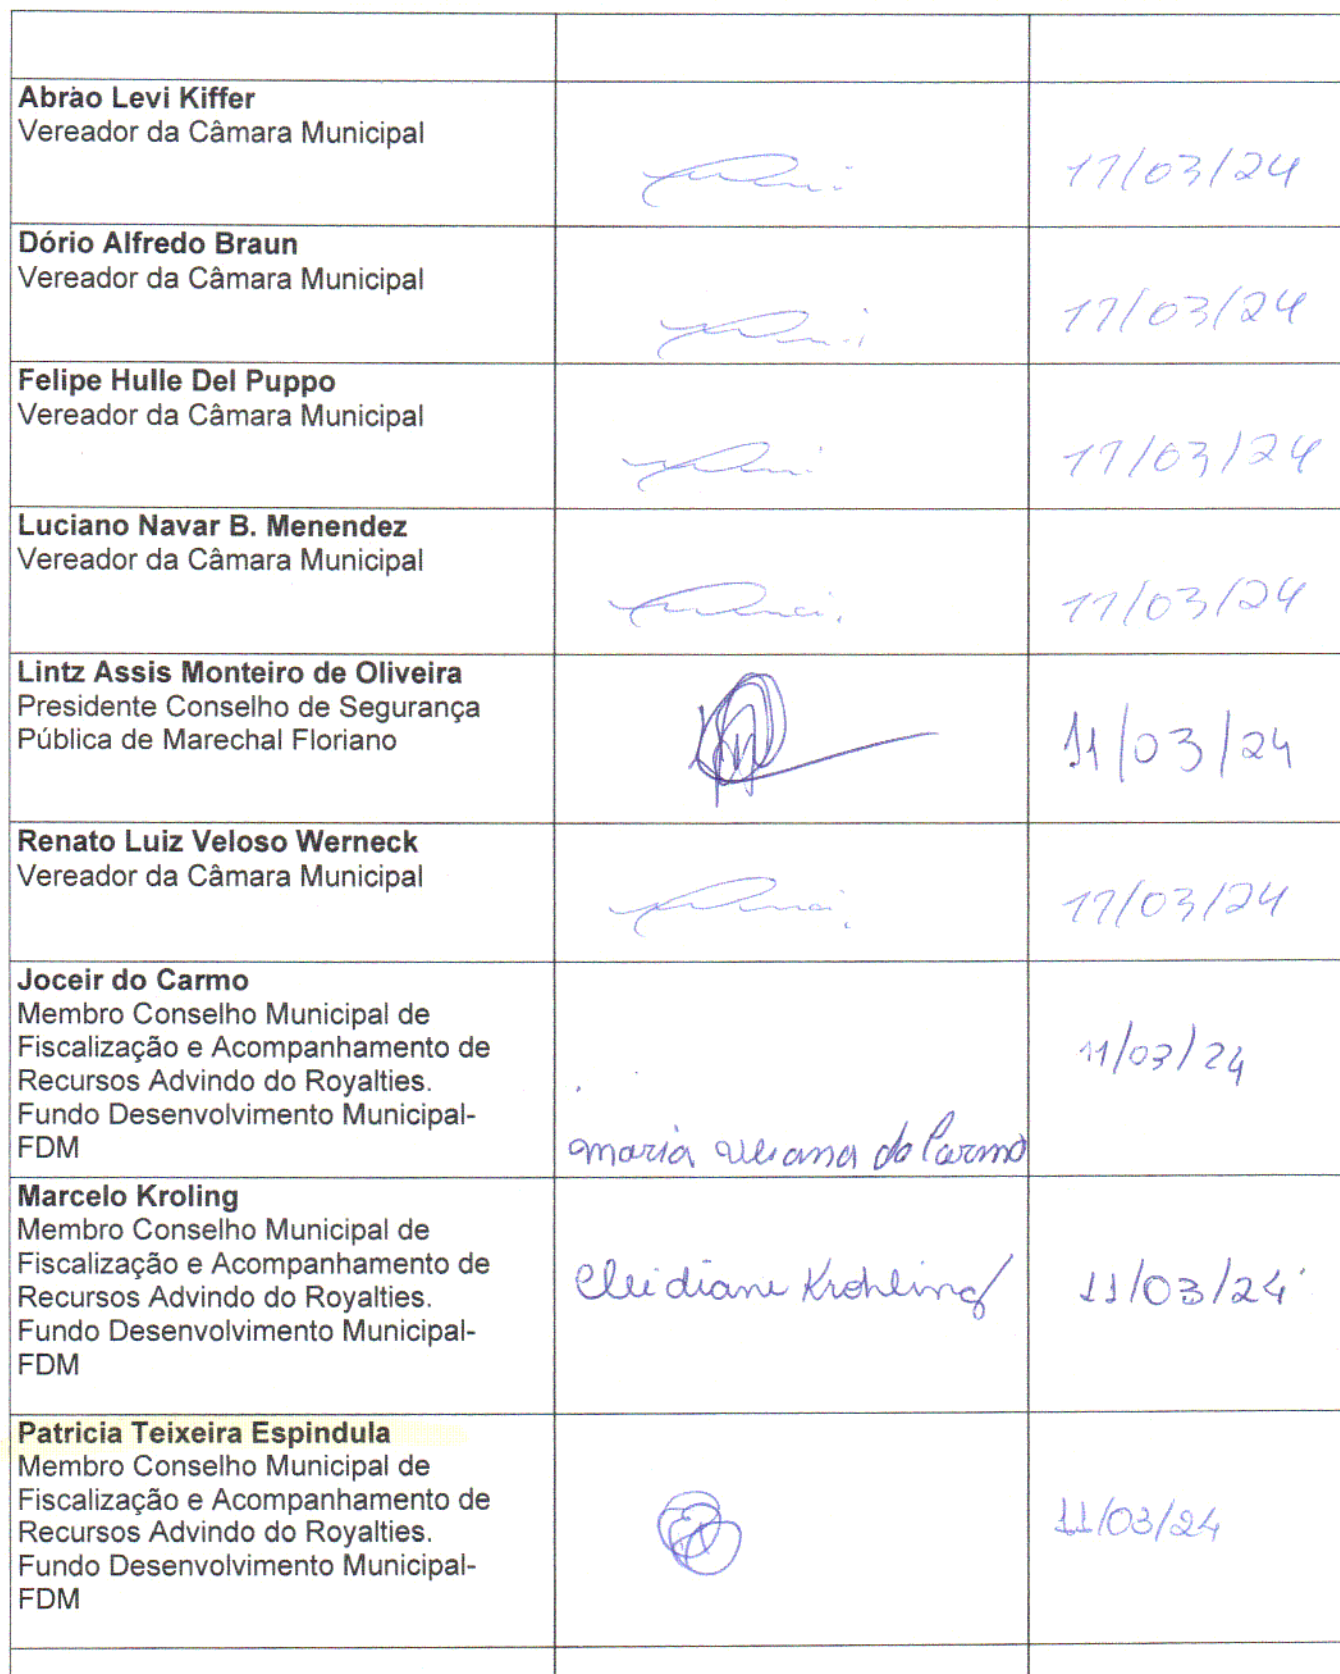 Abrao Levi Kiffer
Vereador da Câmara Municipal
11/03/24
Dório Alfredo Braun
Vereador da Câmara Municipal
11/03/24
Felipe Hulle Del Puppo
Vereador da Câmara Municipal
11/03/24
Luciano Navar B. Menendez
Vereador da Câmara Municipal
11/03/24
Lintz Assis Monteiro de Oliveira
Presidente Conselho de Segurança
Pública de Marechal Floriano
11/03/24
Renato Luiz Veloso Werneck
Vereador da Câmara Municipal
11/03/24
Joceir do Carmo
Membro Conselho Municipal de
Fiscalização e Acompanhamento de
Recursos Advindo do Royalties.
Fundo Desenvolvimento Municipal-
FDM
maria do Carmo
11/03/24
Marcelo Kroling
Membro Conselho Municipal de
Fiscalização e Acompanhamento de
Recursos Advindo do Royalties.
Fundo Desenvolvimento Municipal-
FDM
Cleidiane Krohling
11/03/24
Patricia Teixeira Espindula
Membro Conselho Municipal de
Fiscalização e Acompanhamento de
Recursos Advindo do Royalties.
Fundo Desenvolvimento Municipal-
FDM
11/03/24